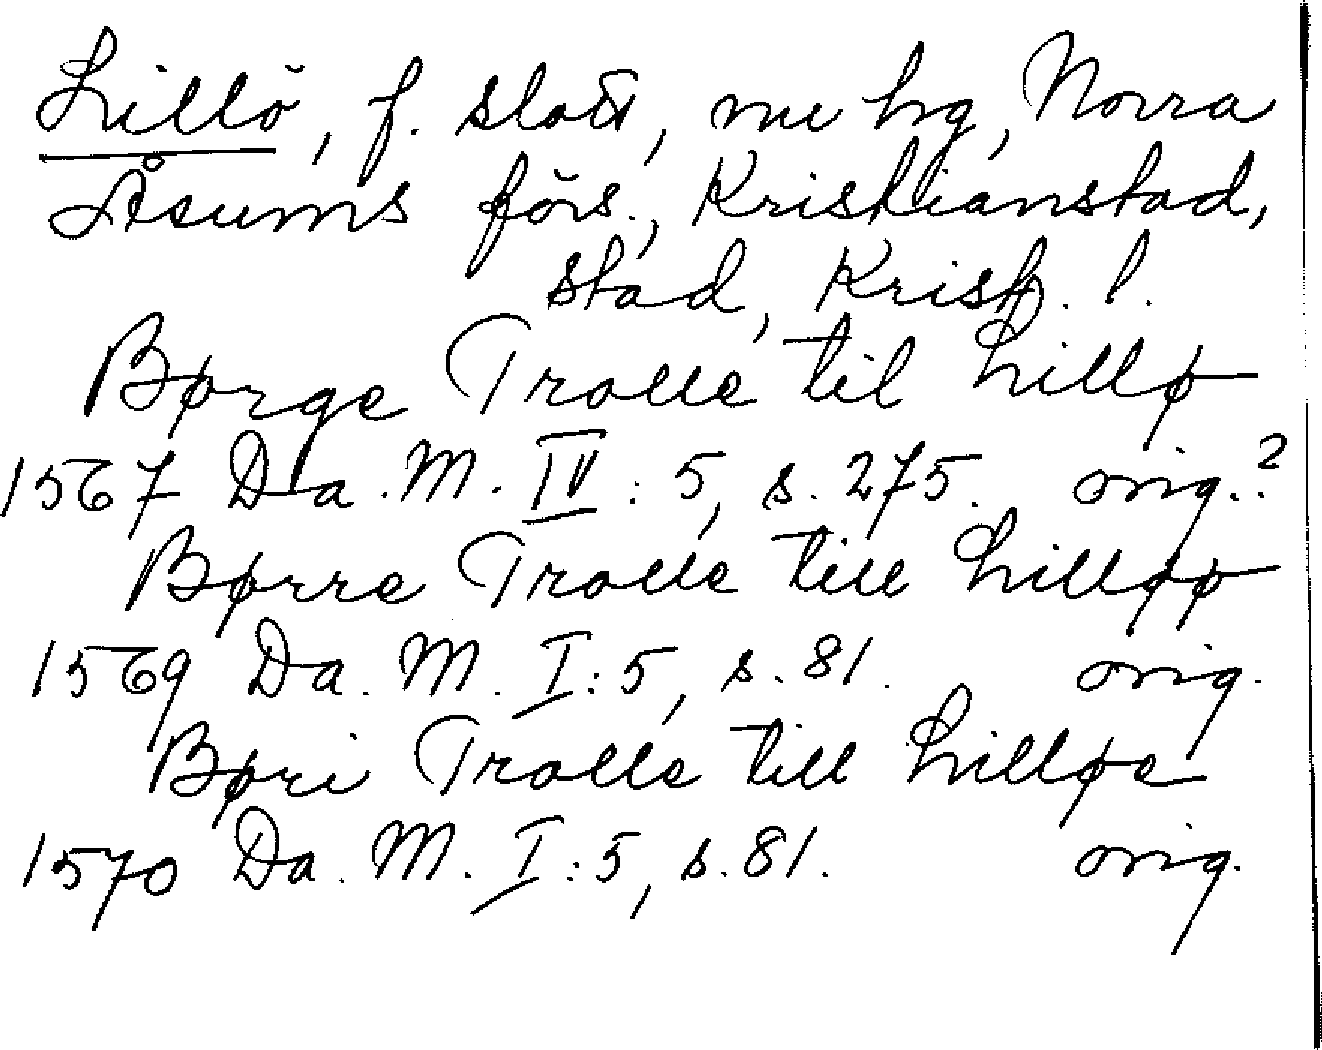 Lillö, f. slott, nu hg, Norra
Åsums förs., Kristianstad,
stad, Krist. l.
Børge Trolle til Lillø
1567 Da. M. IV: 5, s. 275. orig.?
Børre Trolle till Lilløø
1569 Da. M. I: 5, s. 81. orig.
Børi Trolle till Lilløe
1570 Da. M. I: 5, s. 81. orig.